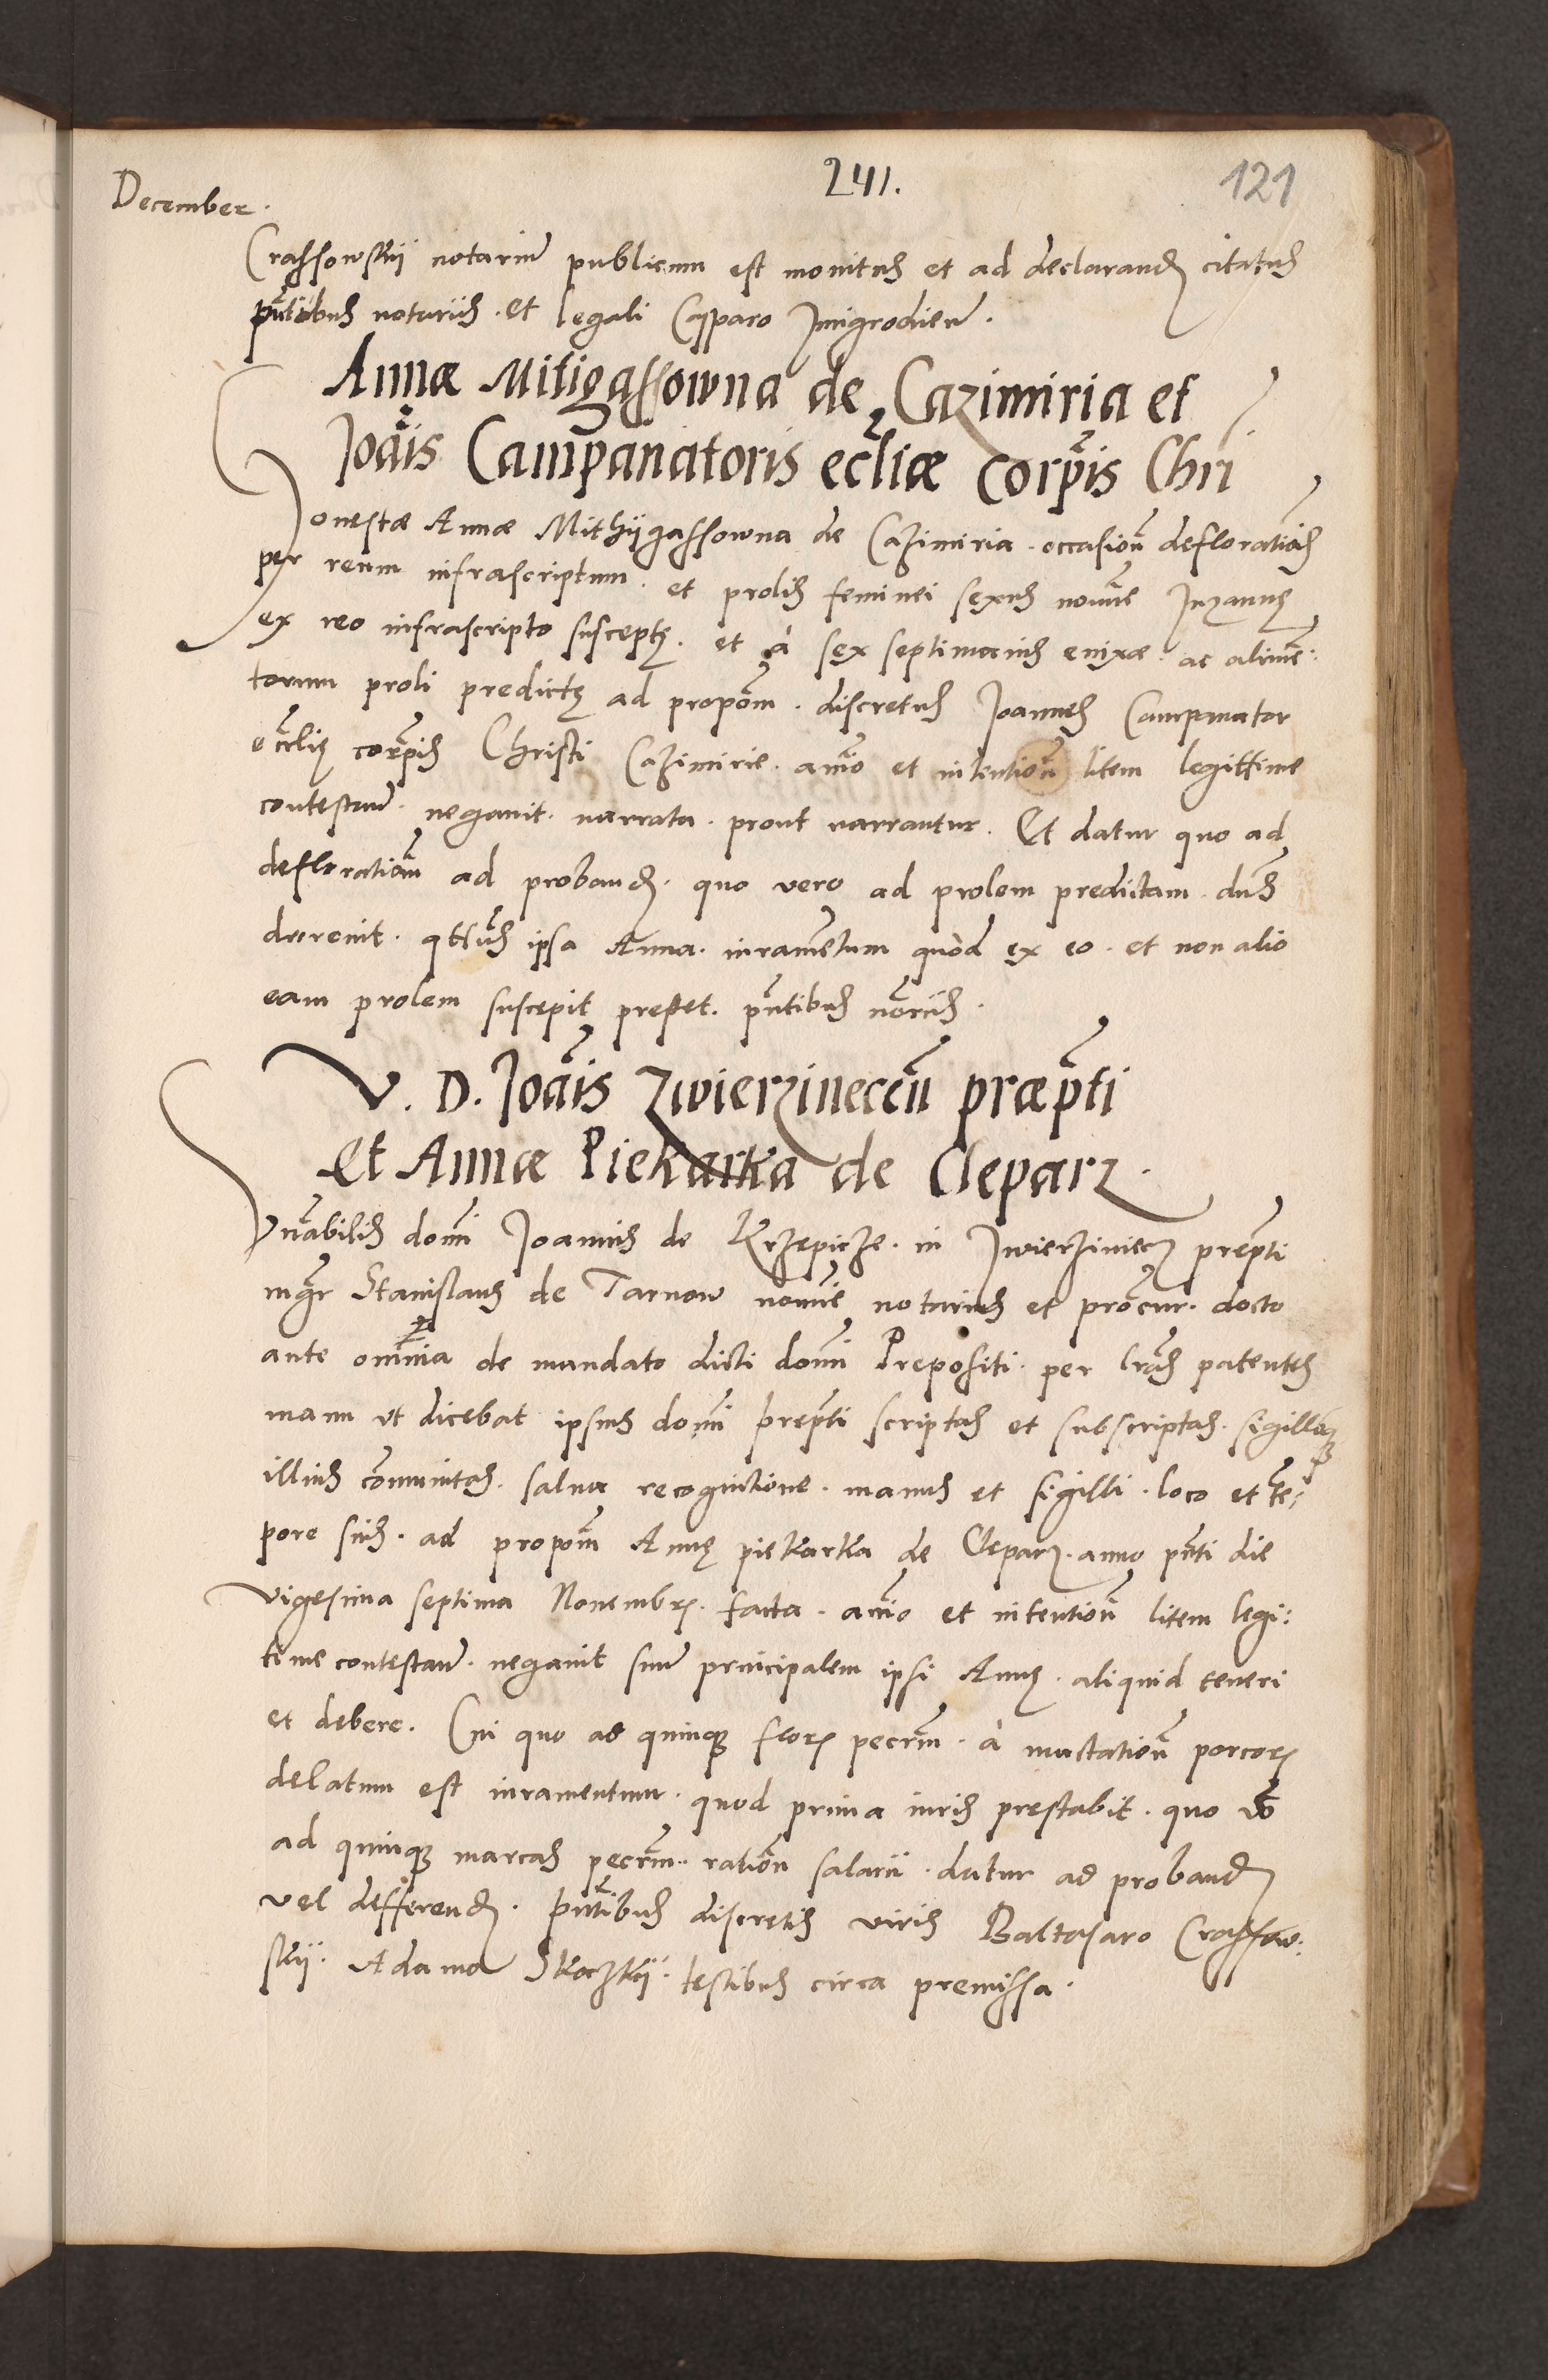 241.
121
December.
Crassowskij notarium publicum est monitus et ad declarand citatus
pntibus notariis. et legali Casparo Jmigrodien.
Annæ Mitigassowna de Cazimiria et
Joais Campanatoris ecliæ corpis Chri
Honestæ Annæ Mithÿgassowna de Cazimiria. occasion deflorationis
per reum infrascriptum. et prolis feminei sexus nomine Zuzannę
ex reo infrascripto susceptę. et à sex septimanis enixæ. ac alimē:
torum proli predictę ad propom. discretus Joannes Campanator
ecclię corpis Christi Cazimirie. animo et intention litem legittime
contestan. negavit. narrata. prout narrantur. Et datur quo ad
defloration ad proband. quo vero ad prolem predictam. dns
decrevit. qtenus ipsa Anna. iuramentum quòd ex eo. et non alio
eam prolem suscepit prestet. pntibus noriis.
V. D. Joais Zwierzineccn præpti
Et Annæ Piekarka de Cleparz.
Vnabilis domi Joannis de Krzepicze. in Zwierziniecz prepti
mgr Stanislaus de Tarnow nomine notarius et procur. docto
ante omnia de mandato dicti domi Prepositi. per lras patentes
manu vt dicebat ipsius domi prepti scriptas et subscriptas. sigilloq
illius communitas. salva recognitione. manus et sigilli. loco et tē:
pore suis. ad propom Annę piekarka de Cleparz. anno pnti die
vigesima septima Novembr. facta. animo et intention litem legi:
time contestan. negavit suum principalem ipsi Annę. aliquid teneri
et debere. Cui quo ad quinque flor pecrm. à mactation porcor
delatum est iuramentum. quod prima iuris prestabit. quo vo
ad quinque marcas pecrm. ration salarii. datur ad proband
vel defferend. pntibus discretis viris Baltasaro Crassow:
skij. Adamo Skoczkij. testibus circa premissa.